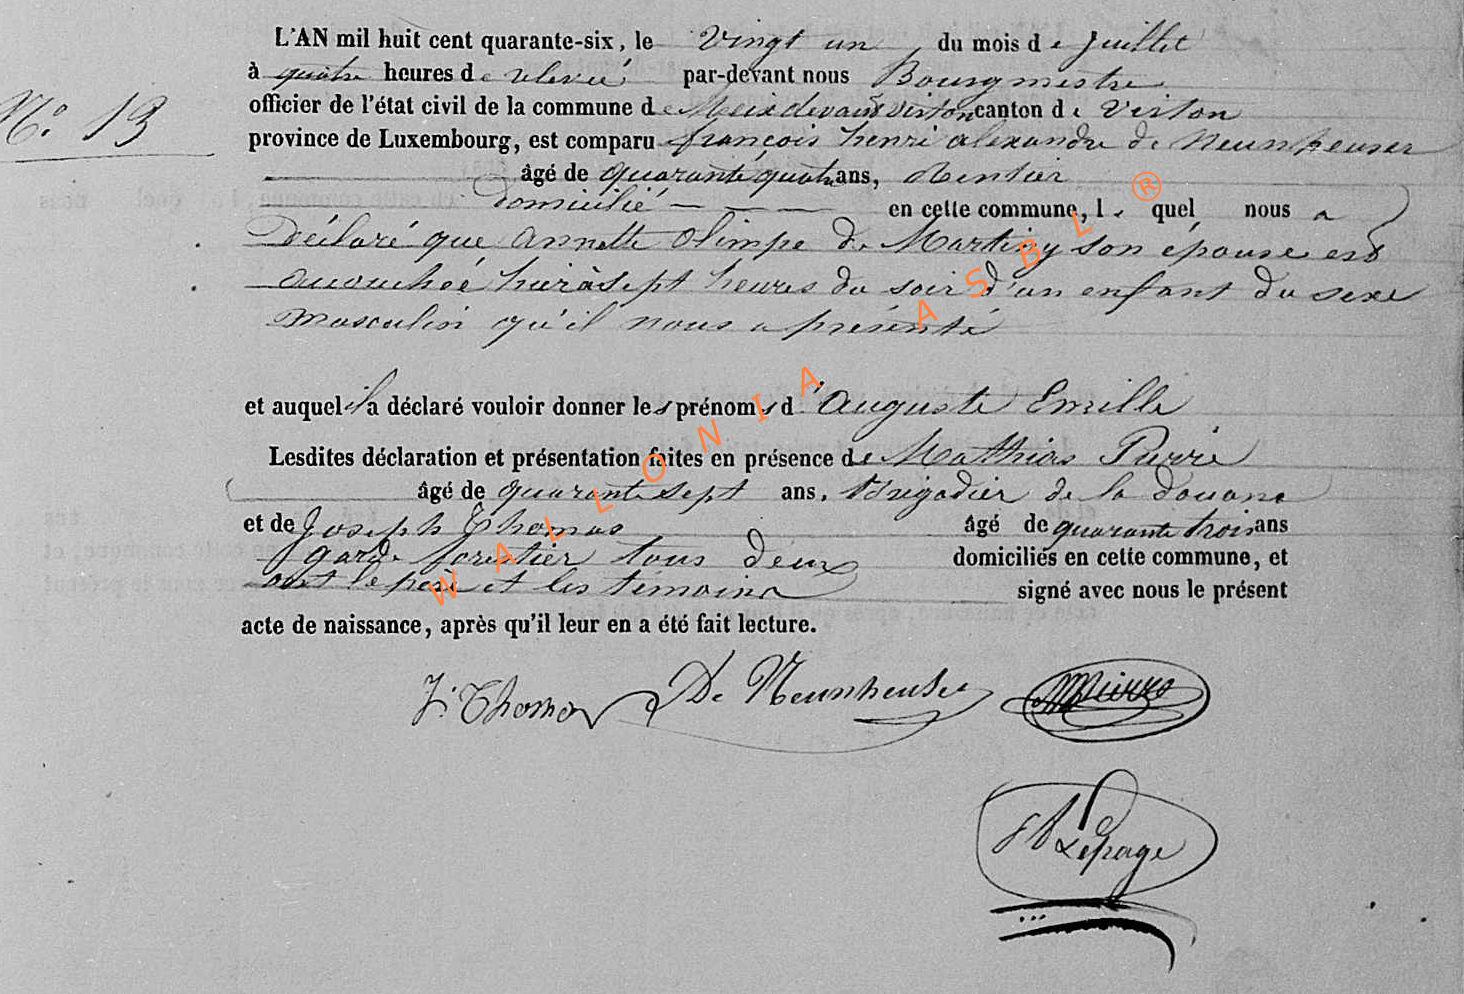 L'AN mil huit cent quarante-six, le vingt un du mois de juillet
à quatre heures de relevée par-devant nous Bourgmestre
officier de l'état civil de la commune de Meix devant virton canton de Virton
N.° 13
province de Luxembourg, est comparu françois henri alexandre de Neunheuser
âgé de quarante quatre ans, Rentier
domicilié en cette commune, lequel nous a
Déclaré que annette olimpe de Martiny son épouse est
accouchée hier à sept heures du soir d'un enfant du sexe
masculin qu'il nous a présenté
et auquel il a déclaré vouloir donner les prénoms d'auguste Emille
Lesdites déclaration et présentation faites en présence de Mathias
âgé de quarante sept ans, Brigadier de la douane
et de Joseph Thomas âgé de quarante trois ans
garde forestier tous deux domiciliés en cette commune, et
ont le père et les témoins signé avec nous le présent
acte de naissance, après qu'il leur en a été fait lecture.
J. Thomas De Neunheuser
Lepage
WALLONIA ASBL ®